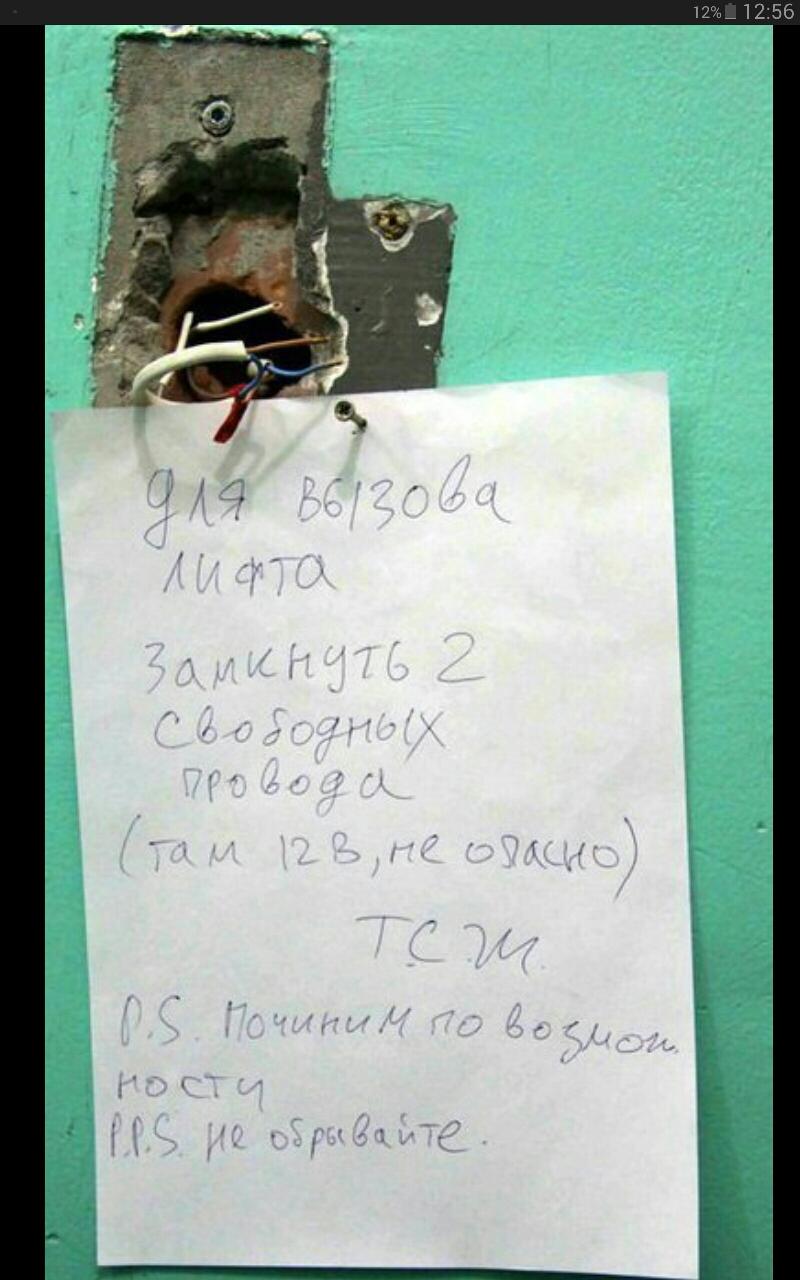 12% 12:56
Для вызова
лифта
Замкнуть 2
свободных
провода
(там 12В, не опасно)
Т.С.Ж.
P.S. Починим по возмож.
ности
P.P.S. не обрывайте.